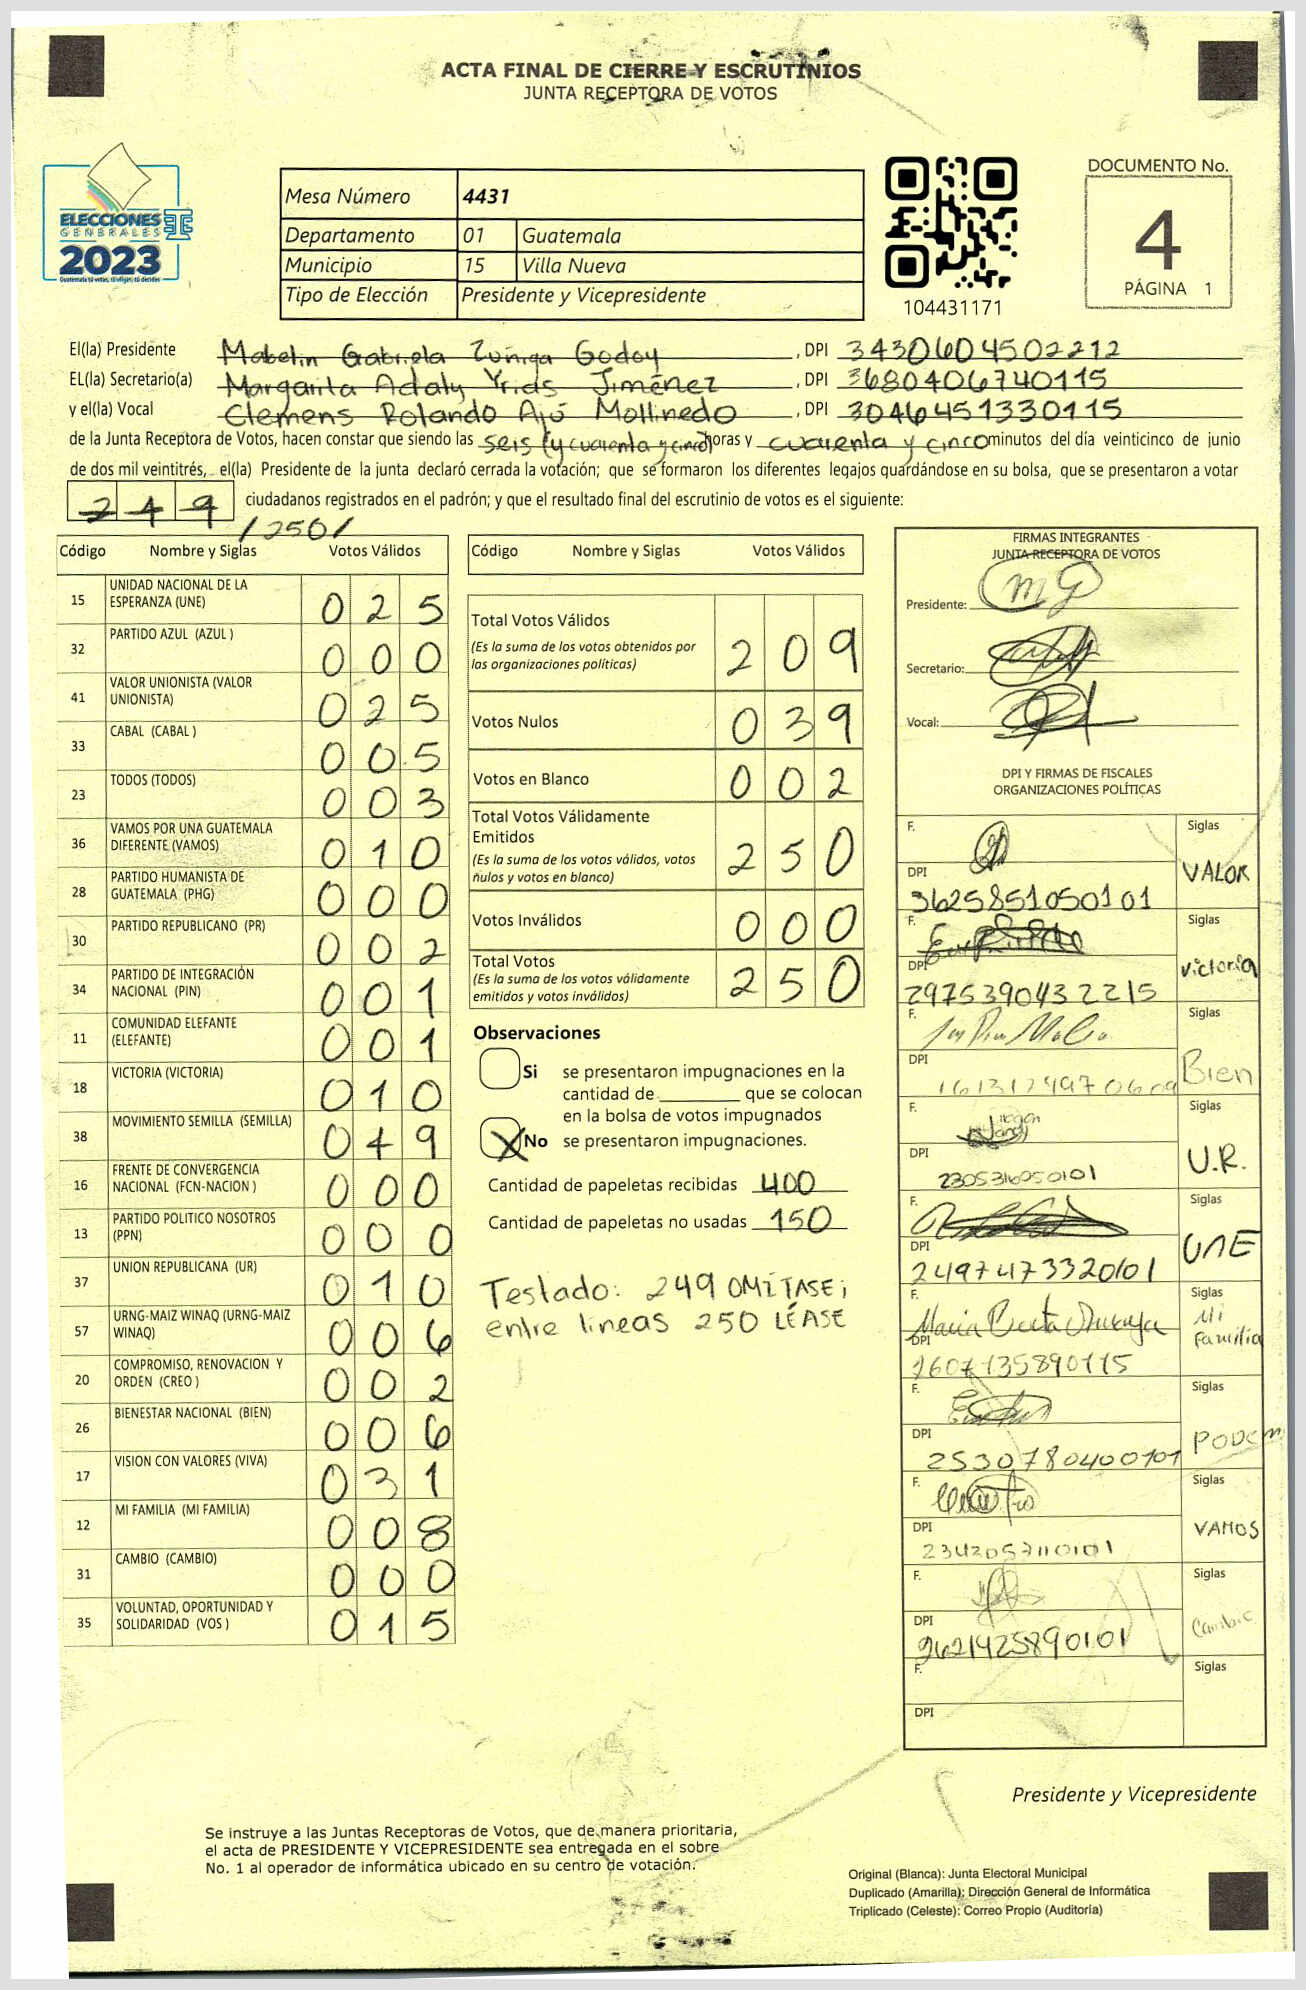 ACTA FINAL DE CIERRE Y ESCRUTINIOS
JUNTA RECEPTORA DE VOTOS
ELECCIONES
GENERALES
2023
Guatemala tú votas, tú eliges, tú decides
Mesa Número 4431
Departamento 01 Guatemala
Municipio 15 Villa Nueva
Tipo de Elección Presidente y Vicepresidente
104431171
DOCUMENTO No.
4
PÁGINA 1
El(la) Presidente Mabelin Gabriela Zuñiga Godoy, DPI 3430604502212
EL(la) Secretario(a) Margarita Adaly Yrias Jiménez, DPI 3680406740115
y el(la) Vocal Clemens Rolando Ajú Mollinedo, DPI 3046451330115
de la Junta Receptora de Votos, hacen constar que siendo las seis (y cuarenta y cinco) horas y cuarenta y cinco minutos del día veinticinco de junio
de dos mil veintitrés, el(la) Presidente de la junta declaró cerrada la votación; que se formaron los diferentes legajos quardándose en su bolsa, que se presentaron a votar
249 ciudadanos registrados en el padrón; y que el resultado final del escrutinio de votos es el siguiente:
/250/
Código Nombre y Siglas Votos Válidos
15 UNIDAD NACIONAL DE LA ESPERANZA (UNE) 025
32 PARTIDO AZUL (AZUL ) 000
41 VALOR UNIONISTA (VALOR UNIONISTA) 025
33 CABAL (CABAL ) 005
23 TODOS (TODOS) 003
36 VAMOS POR UNA GUATEMALA DIFERENTE (VAMOS) 010
28 PARTIDO HUMANISTA DE GUATEMALA (PHG) 000
30 PARTIDO REPUBLICANO (PR) 002
34 PARTIDO DE INTEGRACIÓN NACIONAL (PIN) 001
11 COMUNIDAD ELEFANTE (ELEFANTE) 001
18 VICTORIA (VICTORIA) 010
38 MOVIMIENTO SEMILLA (SEMILLA) 049
16 FRENTE DE CONVERGENCIA NACIONAL (FCN-NACION ) 000
13 PARTIDO POLITICO NOSOTROS (PPN) 000
37 UNION REPUBLICANA (UR) 010
57 URNG-MAIZ WINAQ (URNG-MAIZ WINAQ) 006
20 COMPROMISO, RENOVACION Y ORDEN (CREO ) 002
26 BIENESTAR NACIONAL (BIEN) 006
17 VISION CON VALORES (VIVA) 031
12 MI FAMILIA (MI FAMILIA) 008
31 CAMBIO (CAMBIO) 000
35 VOLUNTAD, OPORTUNIDAD Y SOLIDARIDAD (VOS ) 015
Código Nombre y Siglas Votos Válidos
Total Votos Válidos 209
(Es la suma de los votos obtenidos por
las organizaciones políticas)
Votos Nulos 039
Votos en Blanco 002
Total Votos Válidamente
Emitidos 250
(Es la suma de los votos válidos, votos
nulos y votos en blanco)
Votos Inválidos 000
Total Votos 250
(Es la suma de los votos válidamente
emitidos y votos inválidos)
Observaciones
Si se presentaron impugnaciones en la
cantidad de ________ que se colocan
en la bolsa de votos impugnados
X No se presentaron impugnaciones.
Cantidad de papeletas recibidas 400
Cantidad de papeletas no usadas 150
Testado: 249 OMÍTASE;
entre lineas 250 LÉASE
FIRMAS INTEGRANTES
JUNTA RECEPTORA DE VOTOS
Presidente: MG
Secretario:
Vocal:
DPI Y FIRMAS DE FISCALES
ORGANIZACIONES POLÍTICAS
F. Siglas
VALOR
DPI
3625851050101
F. Siglas
Victoria
DPI
2975390432215
F. Siglas
Bien
DPI
1613124970609
F. Siglas
U.R.
DPI
F. Siglas
UNE
DPI
2497473320101
F. Maria Berta Siglas
Mi
Familia
DPI
1607135890115
F. Siglas
PODEM
DPI
2530780400101
F. Siglas
VAMOS
DPI
2342057110101
F. Siglas
Cambio
DPI
2621425890101
F. Siglas
DPI
Presidente y Vicepresidente
Se instruye a las Juntas Receptoras de Votos, que de manera prioritaria,
el acta de PRESIDENTE Y VICEPRESIDENTE sea entregada en el sobre
No. 1 al operador de informática ubicado en su centro de votación.
Original (Blanca): Junta Electoral Municipal
Duplicado (Amarilla): Dirección General de Informática
Triplicado (Celeste): Correo Propio (Auditoría)